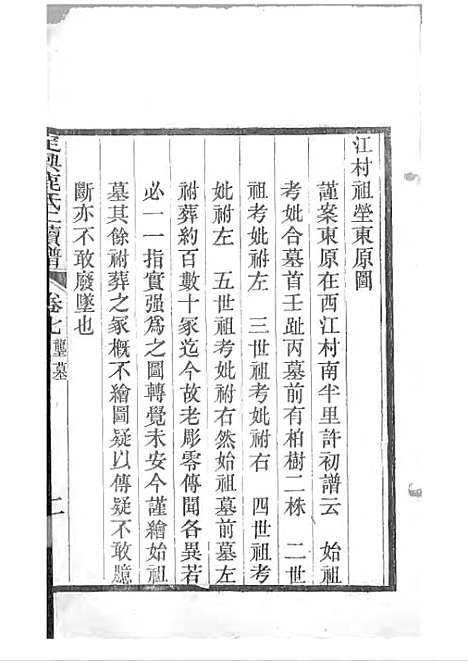 江村祖塋東原圖
謹案東原在西江村南半里許初譜云　始祖
考妣合墓首壬趾丙墓前有柏樹二株　二世
祖考妣祔左　三世祖考妣祔右　四世祖考
妣祔左　五世祖考妣祔右然始祖墓前墓左
祔葬約百數十冢迄今故老彫零傳聞各異若
必一一指實强為之圖轉覺未安今謹繪始祖
墓其餘祔葬之冢概不繪圖疑以傳疑不敢臆
斷亦不敢廢墜也
定興鹿氏二續譜
卷七
塋墓
二